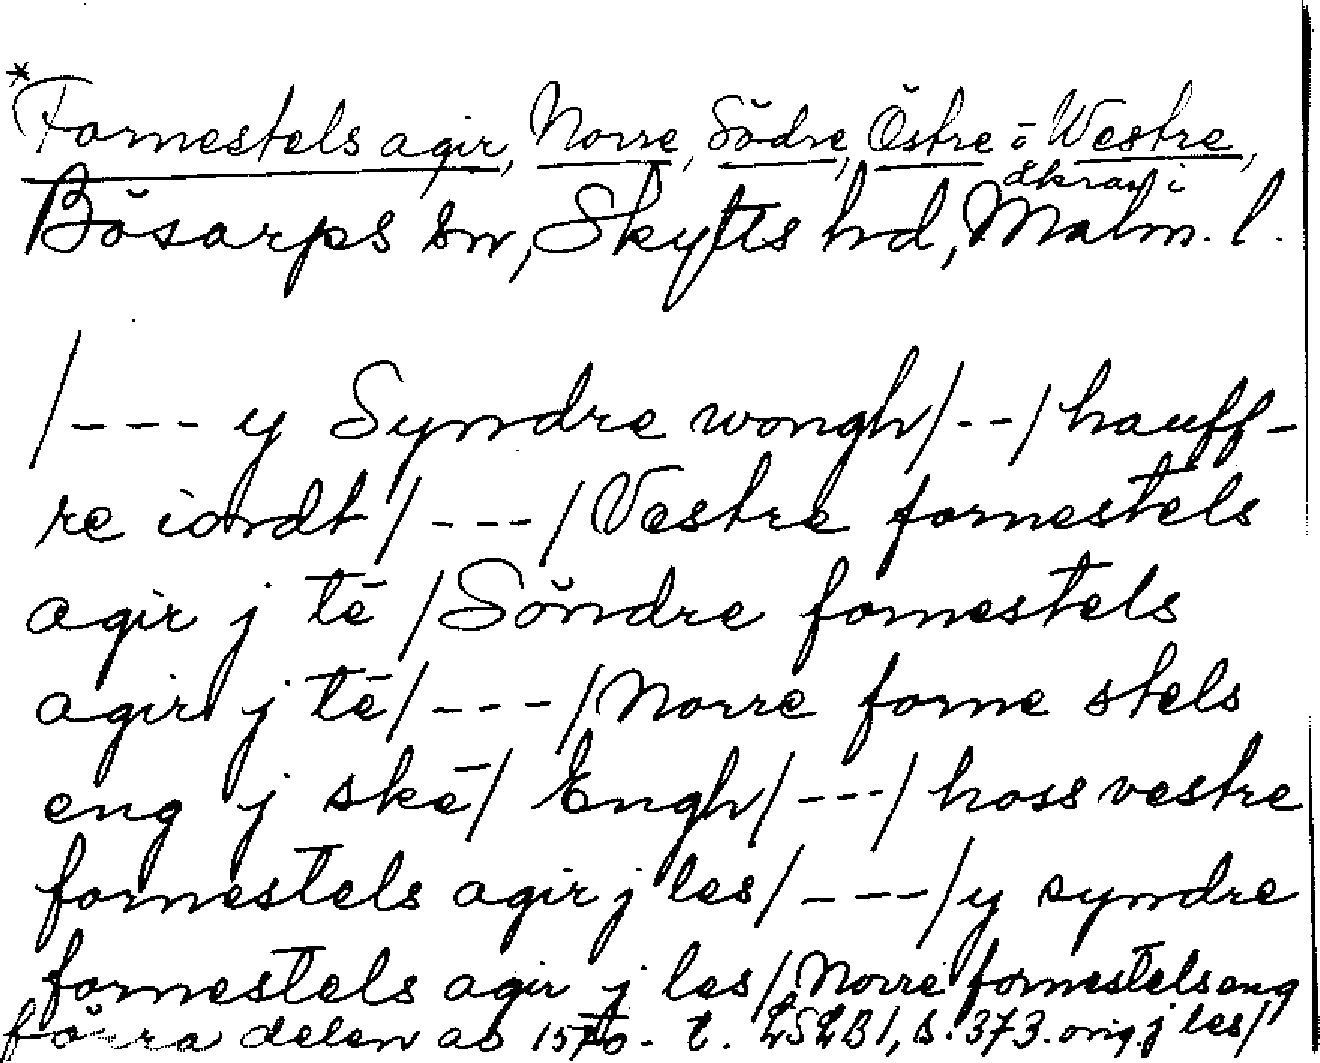 *
Fornestels agir, Norre, Södre, Östre o Westre,
åkrar i
Bösarps sn, Skytts hd, Malm. l.
/--- y Syndre wongh/--/hauff-
re iordt/---/Vestre fornestels
agir j tē /Söndre fornestels
agir j tē/---/Norre forne stels
eng j skē/ Engh/---/hoss vestre
fornestels agir j les/---/y syndre
fornestels agir j les/Norre fornestels eng
j les/
förra delen av 1570-t. LSLB1, s. 373. orig.